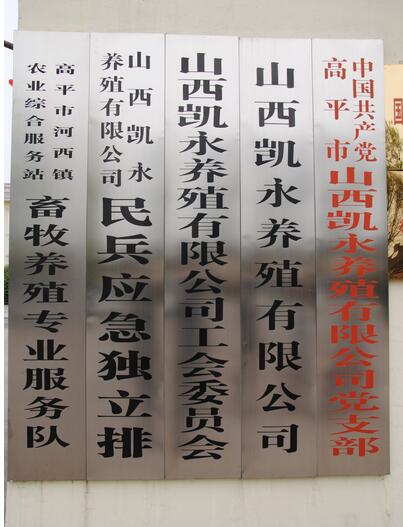 中国共产党
高平市
山西凯永养殖有限公司党支部
山西凯永养殖有限公司
山西凯永养殖有限公司工会委员会
山西凯永
养殖有限公司
民兵应急独立排
高平市河西镇
农业综合服务站
畜牧养殖专业服务队